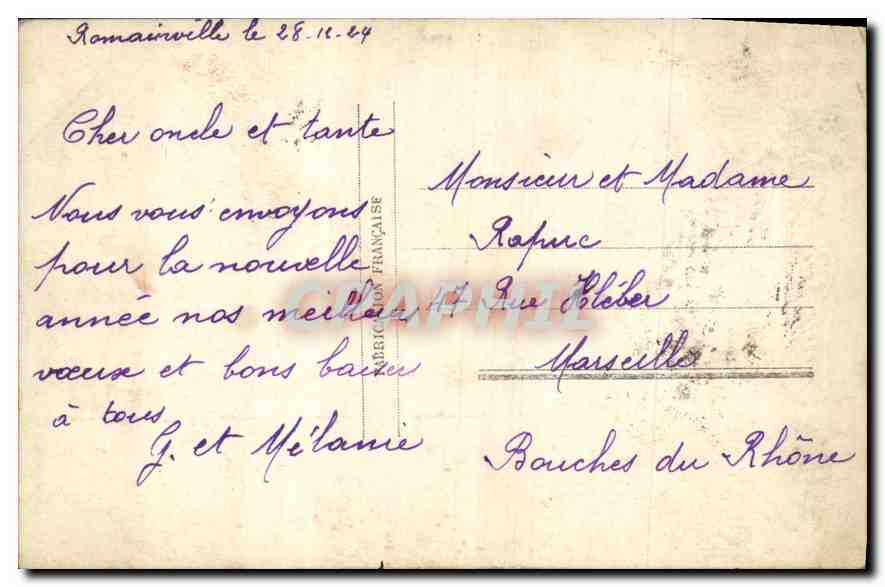 Romainville le 28-12-24
Cher oncle et tante
Nous vous envoyons
pour la nouvelle
année nos meilleurs
vœux et bons baisers
à tous
G. et Mélanie
FABRICATION FRANÇAISE
Monsieur et Madame
Rapuc
47 Rue Kléber
Marseille
Bouches du Rhône
CPAPHIL